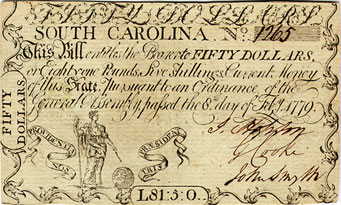 FIFTY DOLLARS
SOUTH CAROLINA. No. 1765
This Bill entitles the Bearer to FIFTY DOLLARS,
or Eighty one Pounds, Five Shillings Current Money
of this State Pursuant to an Ordinance of the
General Assembly passed the 8. day of Feby. 1779.
FIFTY
DOLLARS
PROVIDENTIA
NOS
Cooke
John Smyth
L81:5:0..